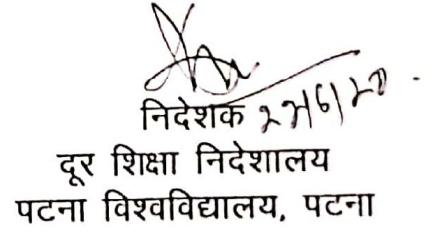 निदेशक
दूर शिक्षा निदेशालय
पटना विश्वविद्यालय, पटना